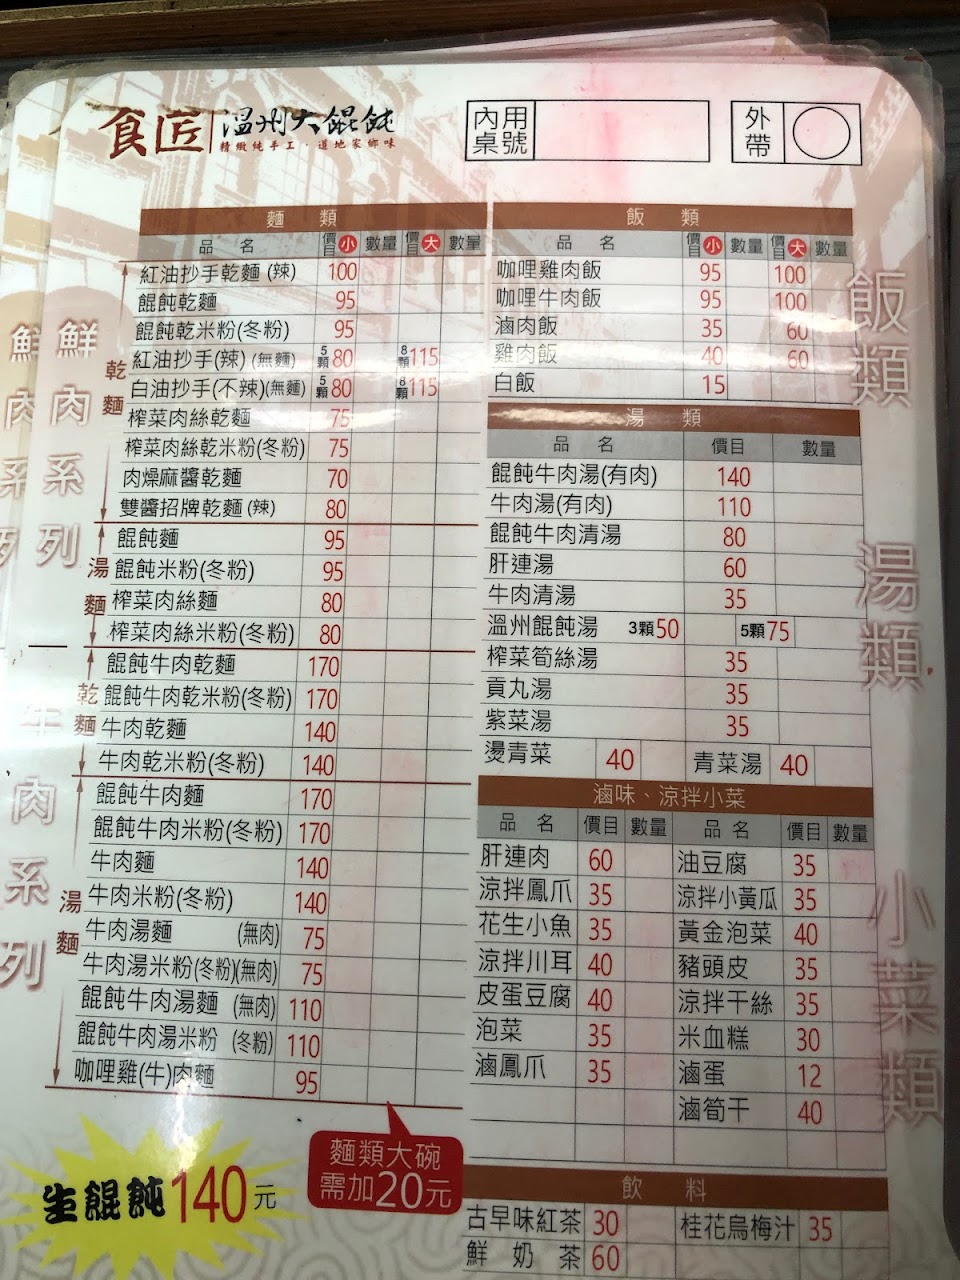 食匠 溫州大餛飩
精緻純手工·道地家鄉味
內用桌號
外帶
麵 類
品 名 價目 小 數量 價目 大 數量
鮮肉系列
乾麵
紅油抄手乾麵(辣) 100
餛飩乾麵 95
餛飩乾米粉(冬粉) 95
紅油抄手(辣)(無麵) 5顆80 8顆115
白油抄手(不辣)(無麵) 5顆80 8顆115
榨菜肉絲乾麵 75
榨菜肉絲乾米粉(冬粉) 75
肉燥麻醬乾麵 70
雙醬招牌乾麵(辣) 80
湯麵
餛飩麵 95
餛飩米粉(冬粉) 95
榨菜肉絲麵 80
榨菜肉絲米粉(冬粉) 80
牛肉系列
乾麵
餛飩牛肉乾麵 170
餛飩牛肉乾米粉(冬粉) 170
牛肉乾麵 140
牛肉乾米粉(冬粉) 140
湯麵
餛飩牛肉麵 170
餛飩牛肉米粉(冬粉) 170
牛肉麵 140
牛肉米粉(冬粉) 140
牛肉湯麵 (無肉) 75
牛肉湯米粉(冬粉)(無肉) 75
餛飩牛肉湯麵 (無肉) 110
餛飩牛肉湯米粉 (冬粉) 110
咖哩雞(牛)肉麵 95
麵類大碗
需加20元
生餛飩140元
飯類
飯 類
品 名 價目 小 數量 價目 大 數量
咖哩雞肉飯 95 100
咖哩牛肉飯 95 100
滷肉飯 35 60
雞肉飯 40 60
白飯 15
湯類
湯 類
品 名 價目 數量
餛飩牛肉湯(有肉) 140
牛肉湯(有肉) 110
餛飩牛肉清湯 80
肝連湯 60
牛肉清湯 35
溫州餛飩湯 3顆50 5顆75
榨菜筍絲湯 35
貢丸湯 35
紫菜湯 35
燙青菜 40 青菜湯 40
小菜類
滷味、涼拌小菜
品 名 價目 數量 品 名 價目 數量
肝連肉 60 油豆腐 35
涼拌鳳爪 35 涼拌小黃瓜 35
花生小魚 35 黃金泡菜 40
涼拌川耳 40 豬頭皮 35
皮蛋豆腐 40 涼拌干絲 35
泡菜 35 米血糕 30
滷鳳爪 35 滷蛋 12
滷筍干 40
飲 料
古早味紅茶 30 桂花烏梅汁 35
鮮奶茶 60